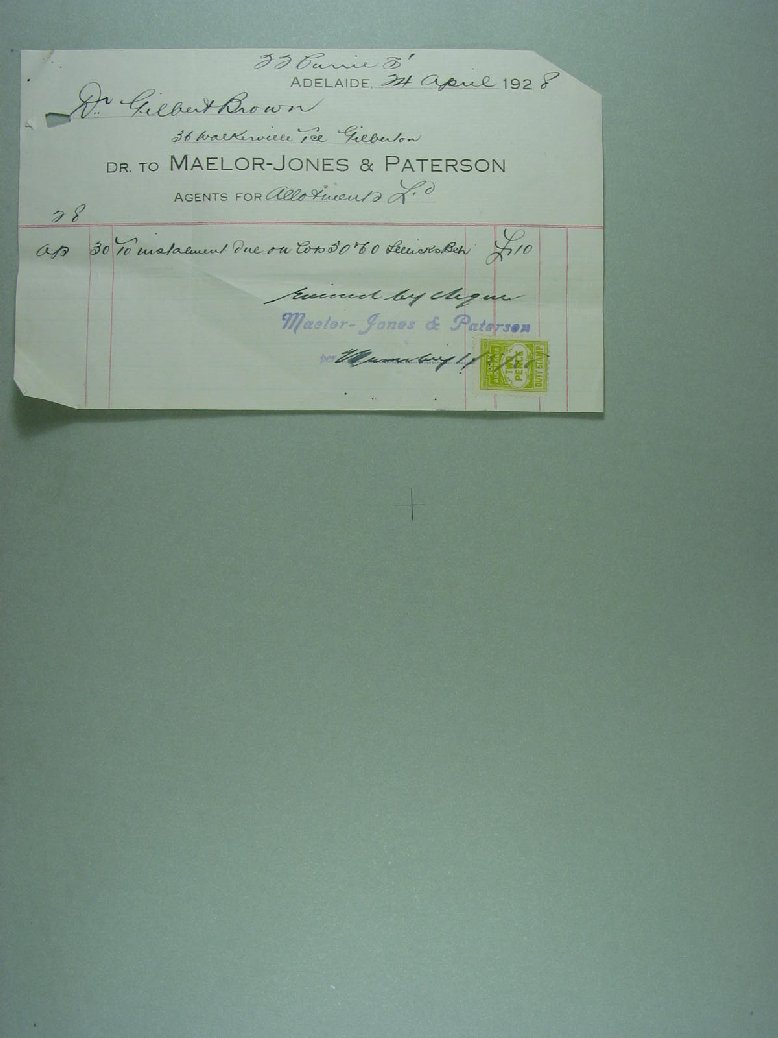 33 Currie St
ADELAIDE, 24 April 1928
Dr Gilbert Brown
36 Walkerville Tce Gilberton
DR. TO MAELOR-JONES & PATERSON
AGENTS FOR Allotments Ld
28
Ap 30 To instalment due on Lots 30 & 60 Sellicks Bch £10
received by cheque
Maelor-Jones & Paterson
per
TWO PENCE
DUTY STAMP